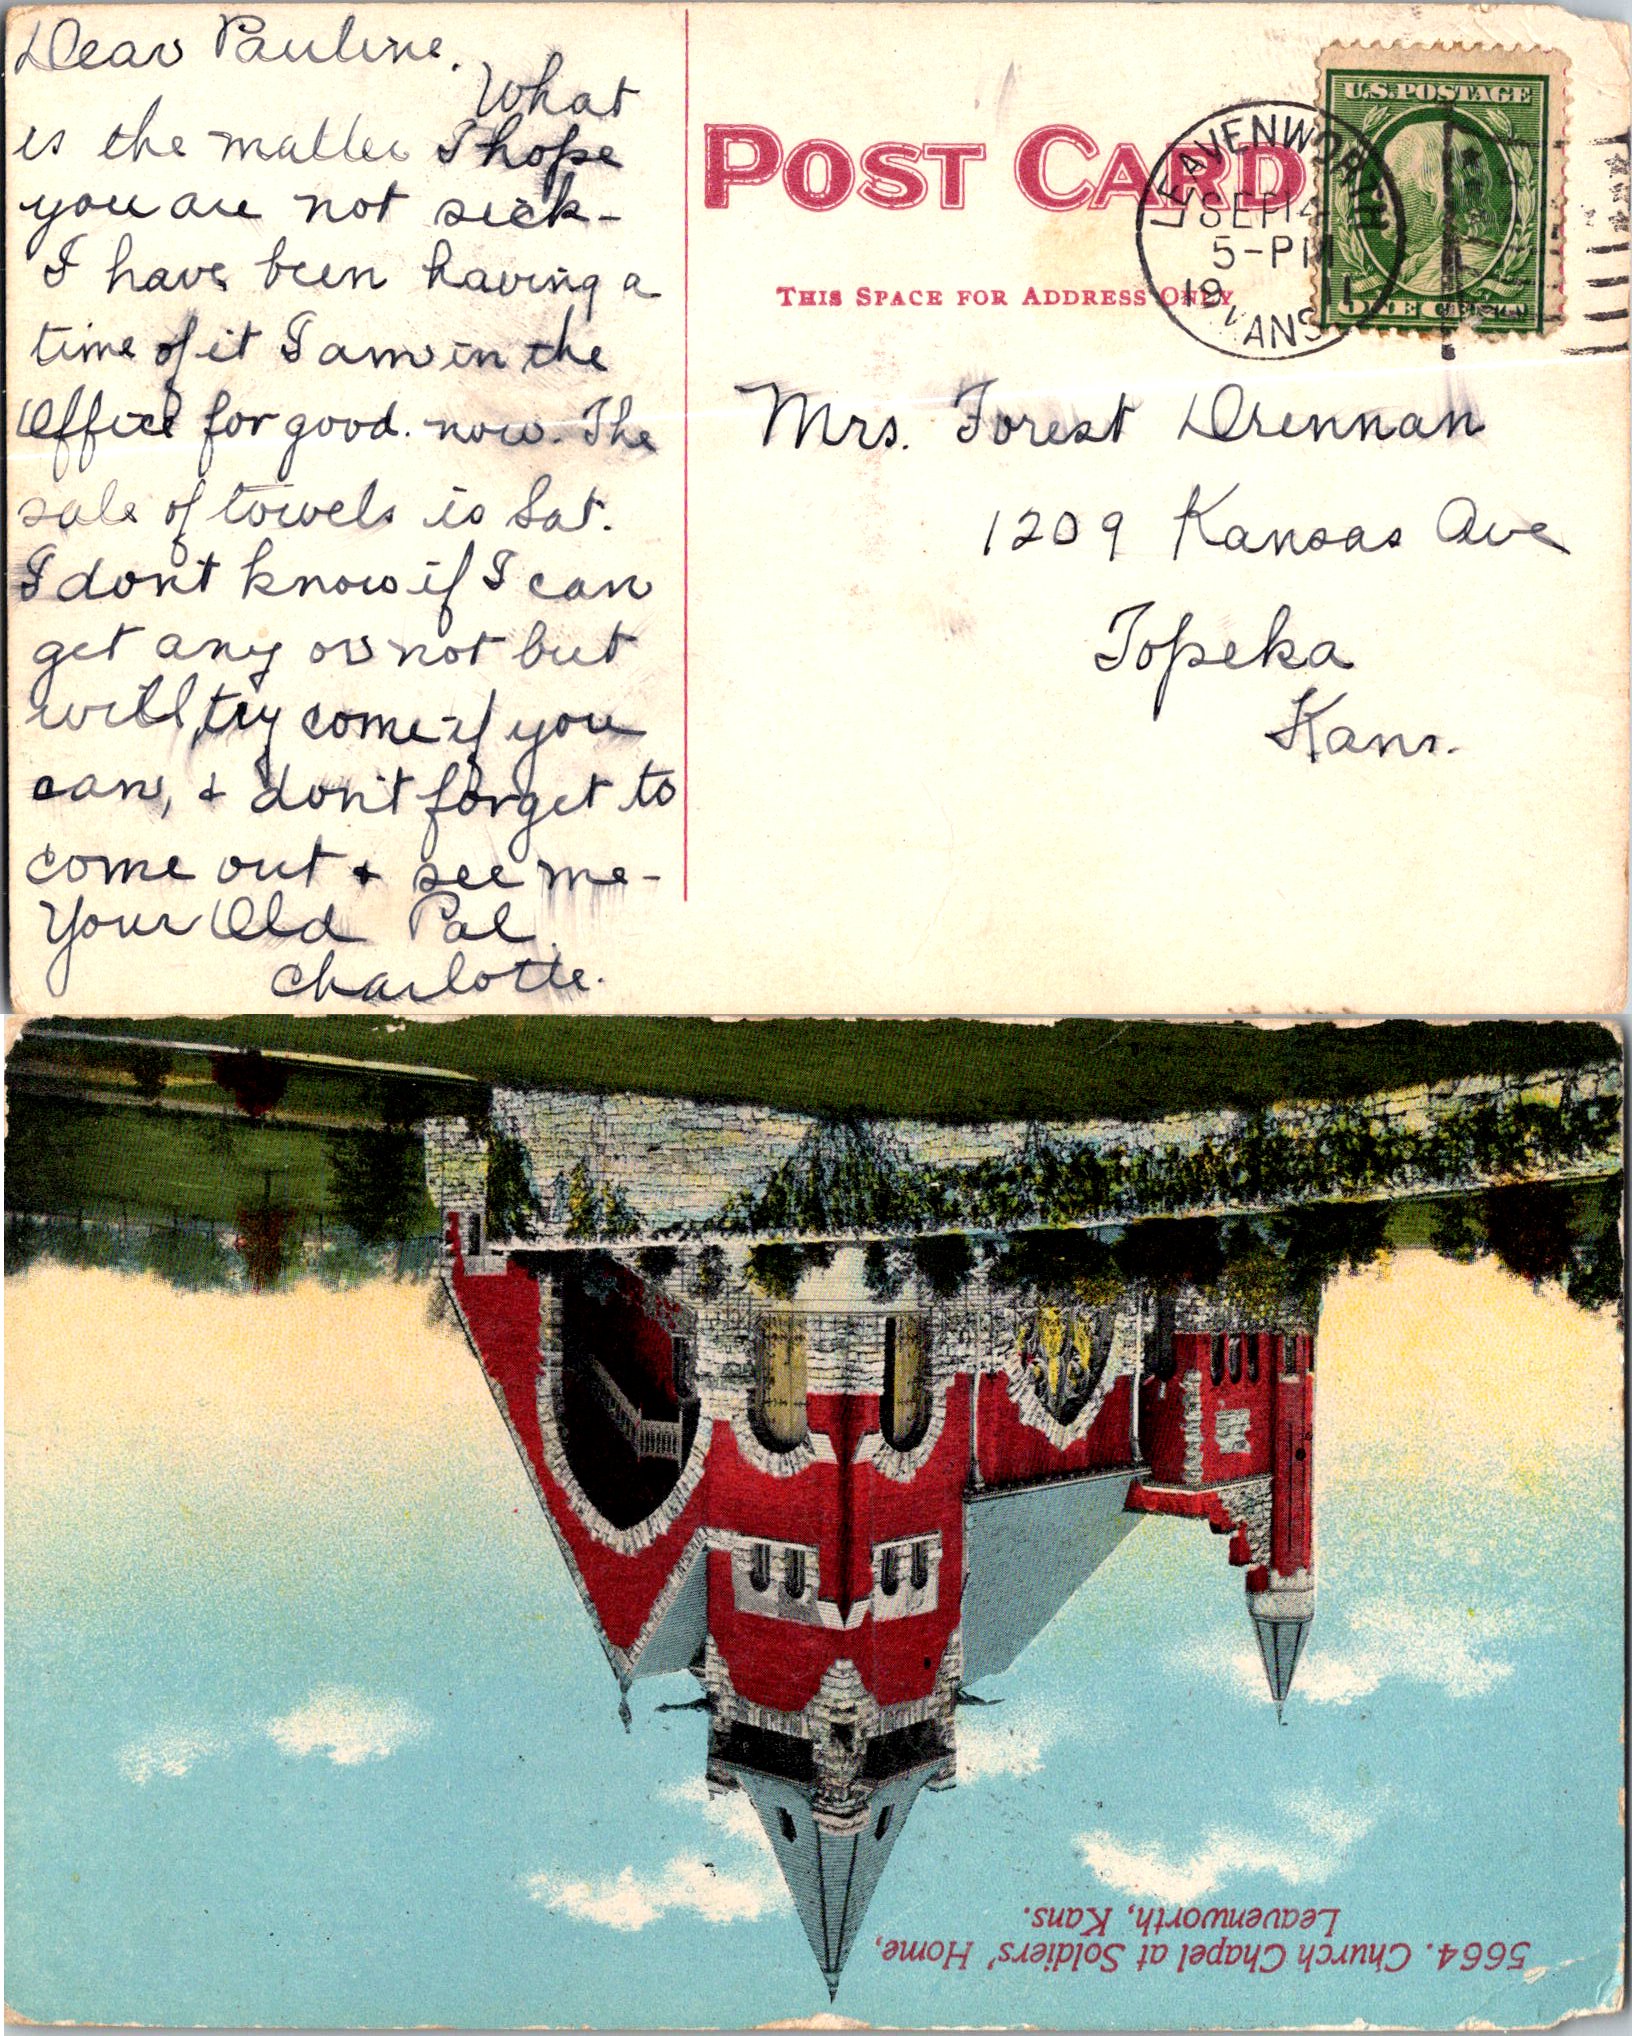 Dear Pauline.
What
is the matter I hope
you are not sick-
I have been having a
time of it I am in the
Office for good. now. The
sale of towels is Sat.
I don't know if I can
get any or not but
will, try come if you
can, & don't forget to
come out & see me-
Your Old Pal.
Charlotte.
POST CARD
THIS SPACE FOR ADDRESS ONLY
LEAVENWORTH
SEP 14
5-PM
191 1
KANS
U.S. POSTAGE
ONE CENT
Mrs. Forest Drennan
1209 Kansas Ave
Topeka
Kans.
5664. Church Chapel at Soldiers' Home,
Leavenworth, Kans.